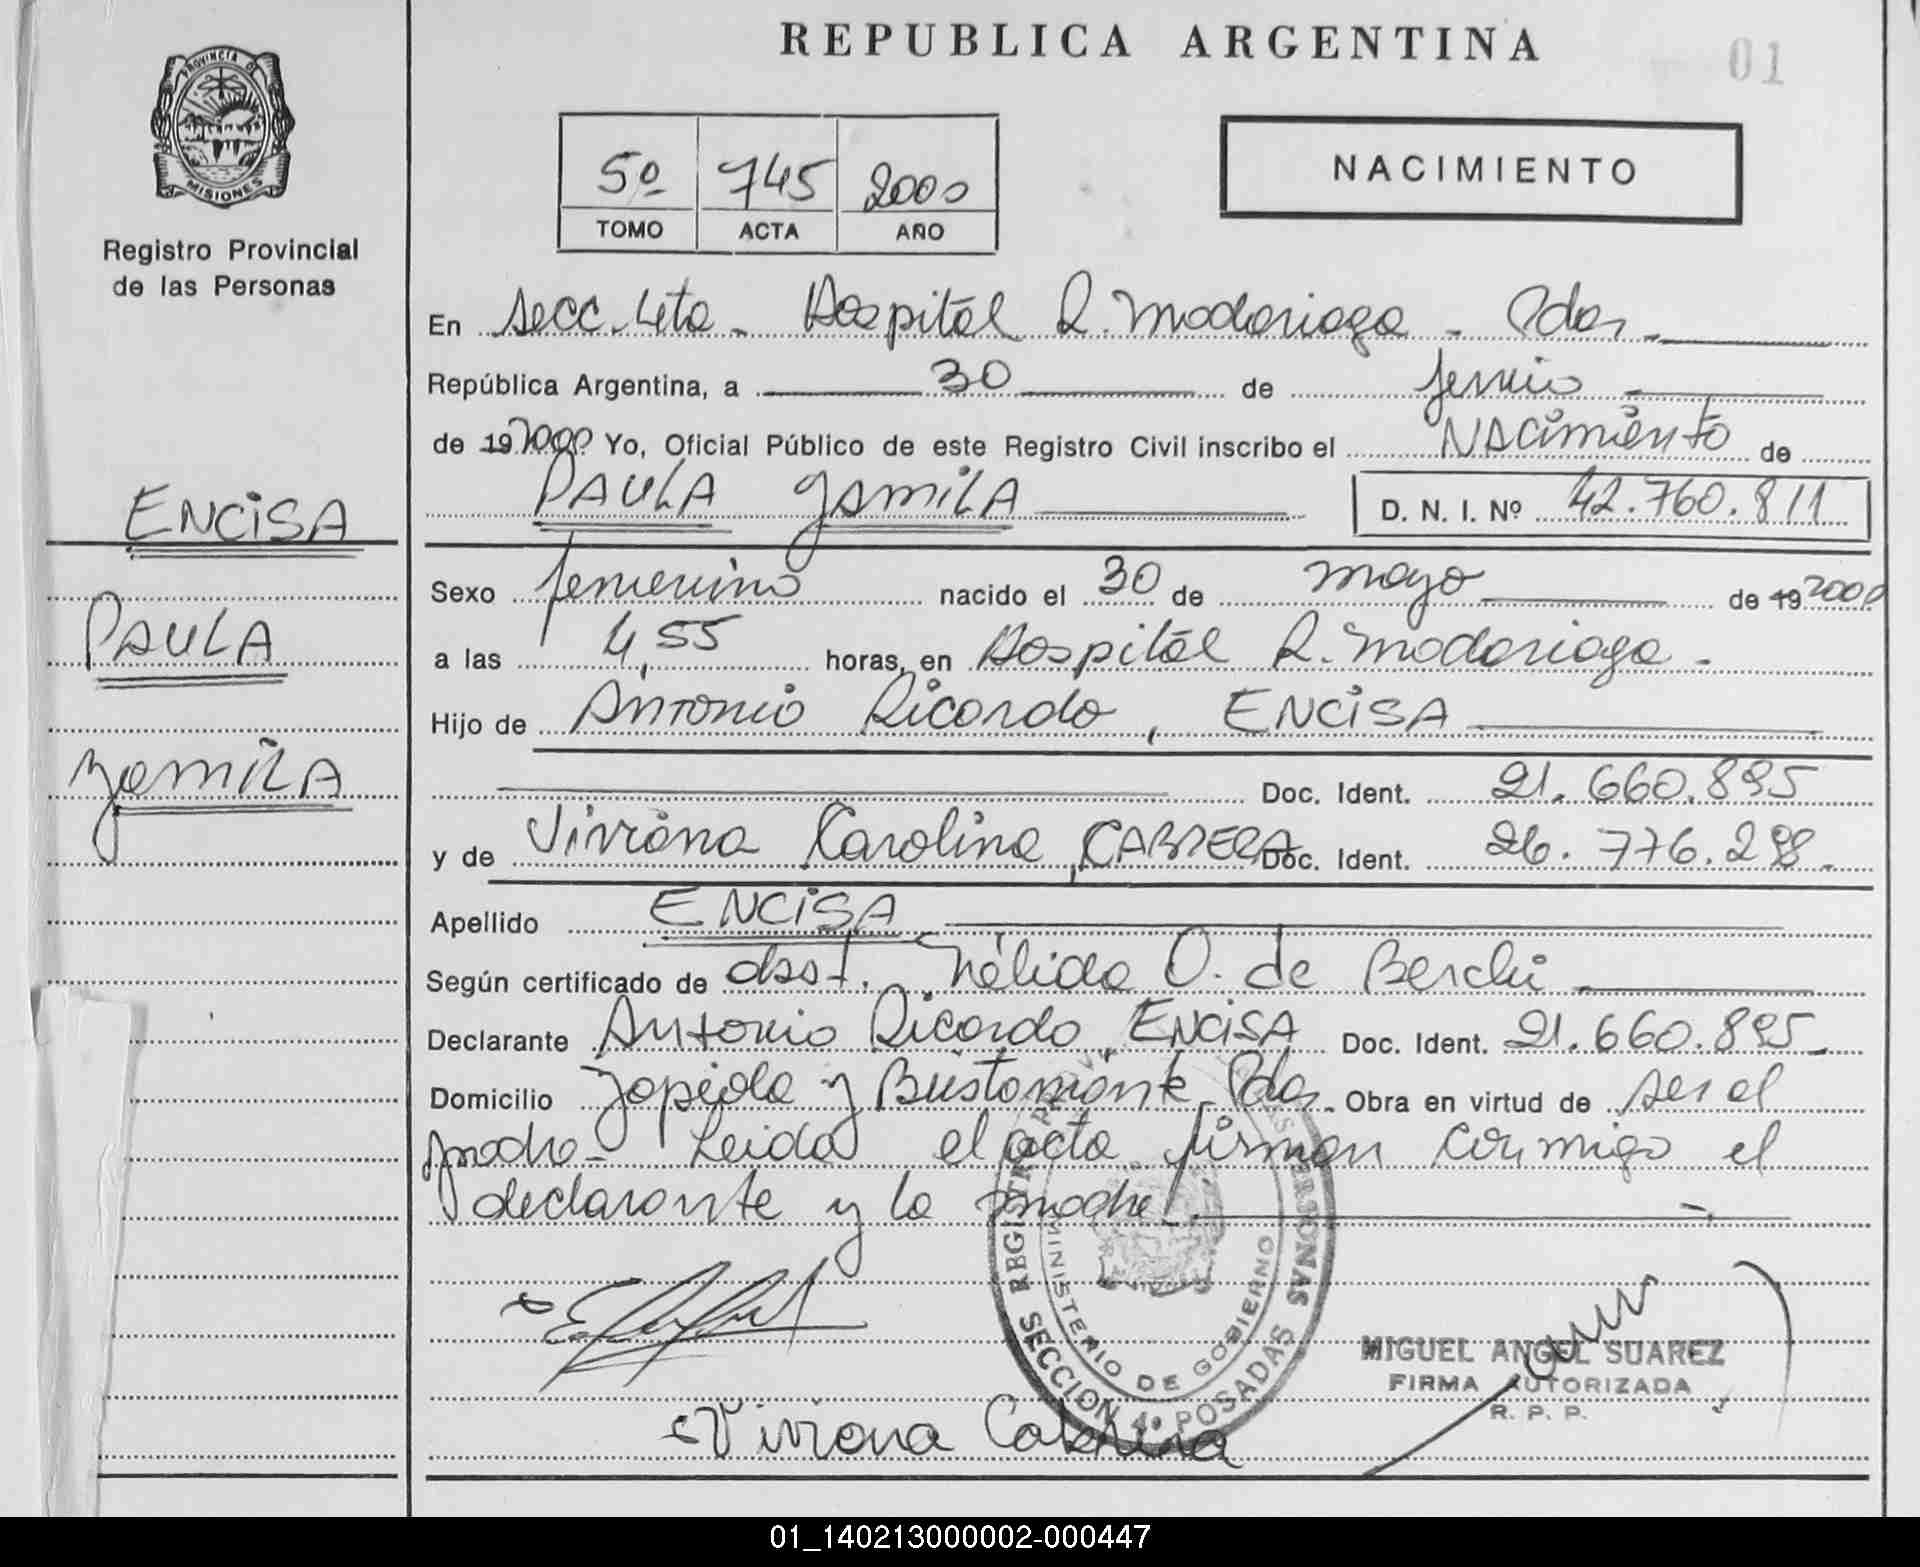 REPUBLICA ARGENTINA
01
PROVINCIA DE
MISIONES
Registro Provincial
de las Personas
5º 745 2000
TOMO ACTA AÑO
NACIMIENTO
En Secc. 4ta. Hospital R. Madariaga - Pdas.
República Argentina, a 30 de junio
de 19 2000 Yo, Oficial Público de este Registro Civil inscribo el NACimiento de
PAULA YAMILA D. N. I. Nº 42.760.811
ENCISA
PAULA
YAMILA
Sexo femenino nacido el 30 de mayo de 19 2000
a las 4,55 horas, en Hospital R. Madariaga.
Hijo de Antonio Ricardo, ENCISA
Doc. Ident. 21.660.895
y de Viviana Carolina, CABRERA Doc. Ident. 26.776.298.
Apellido ENCISA
Según certificado de obst. Nélida O. de Berchi
Declarante Antonio Ricardo ENCISA Doc. Ident. 21.660.895
Domicilio Zapiola y Bustamante Pdas. Obra en virtud de ser el
padre - Leida el acta firman conmigo el
declarante y la madre
SECCION 4º POSADAS
MINISTERIO DE GOBIERNO
MIGUEL ANGEL SUAREZ
FIRMA AUTORIZADA
R. P. P.
Viviana Cabrera
01_140213000002-000447